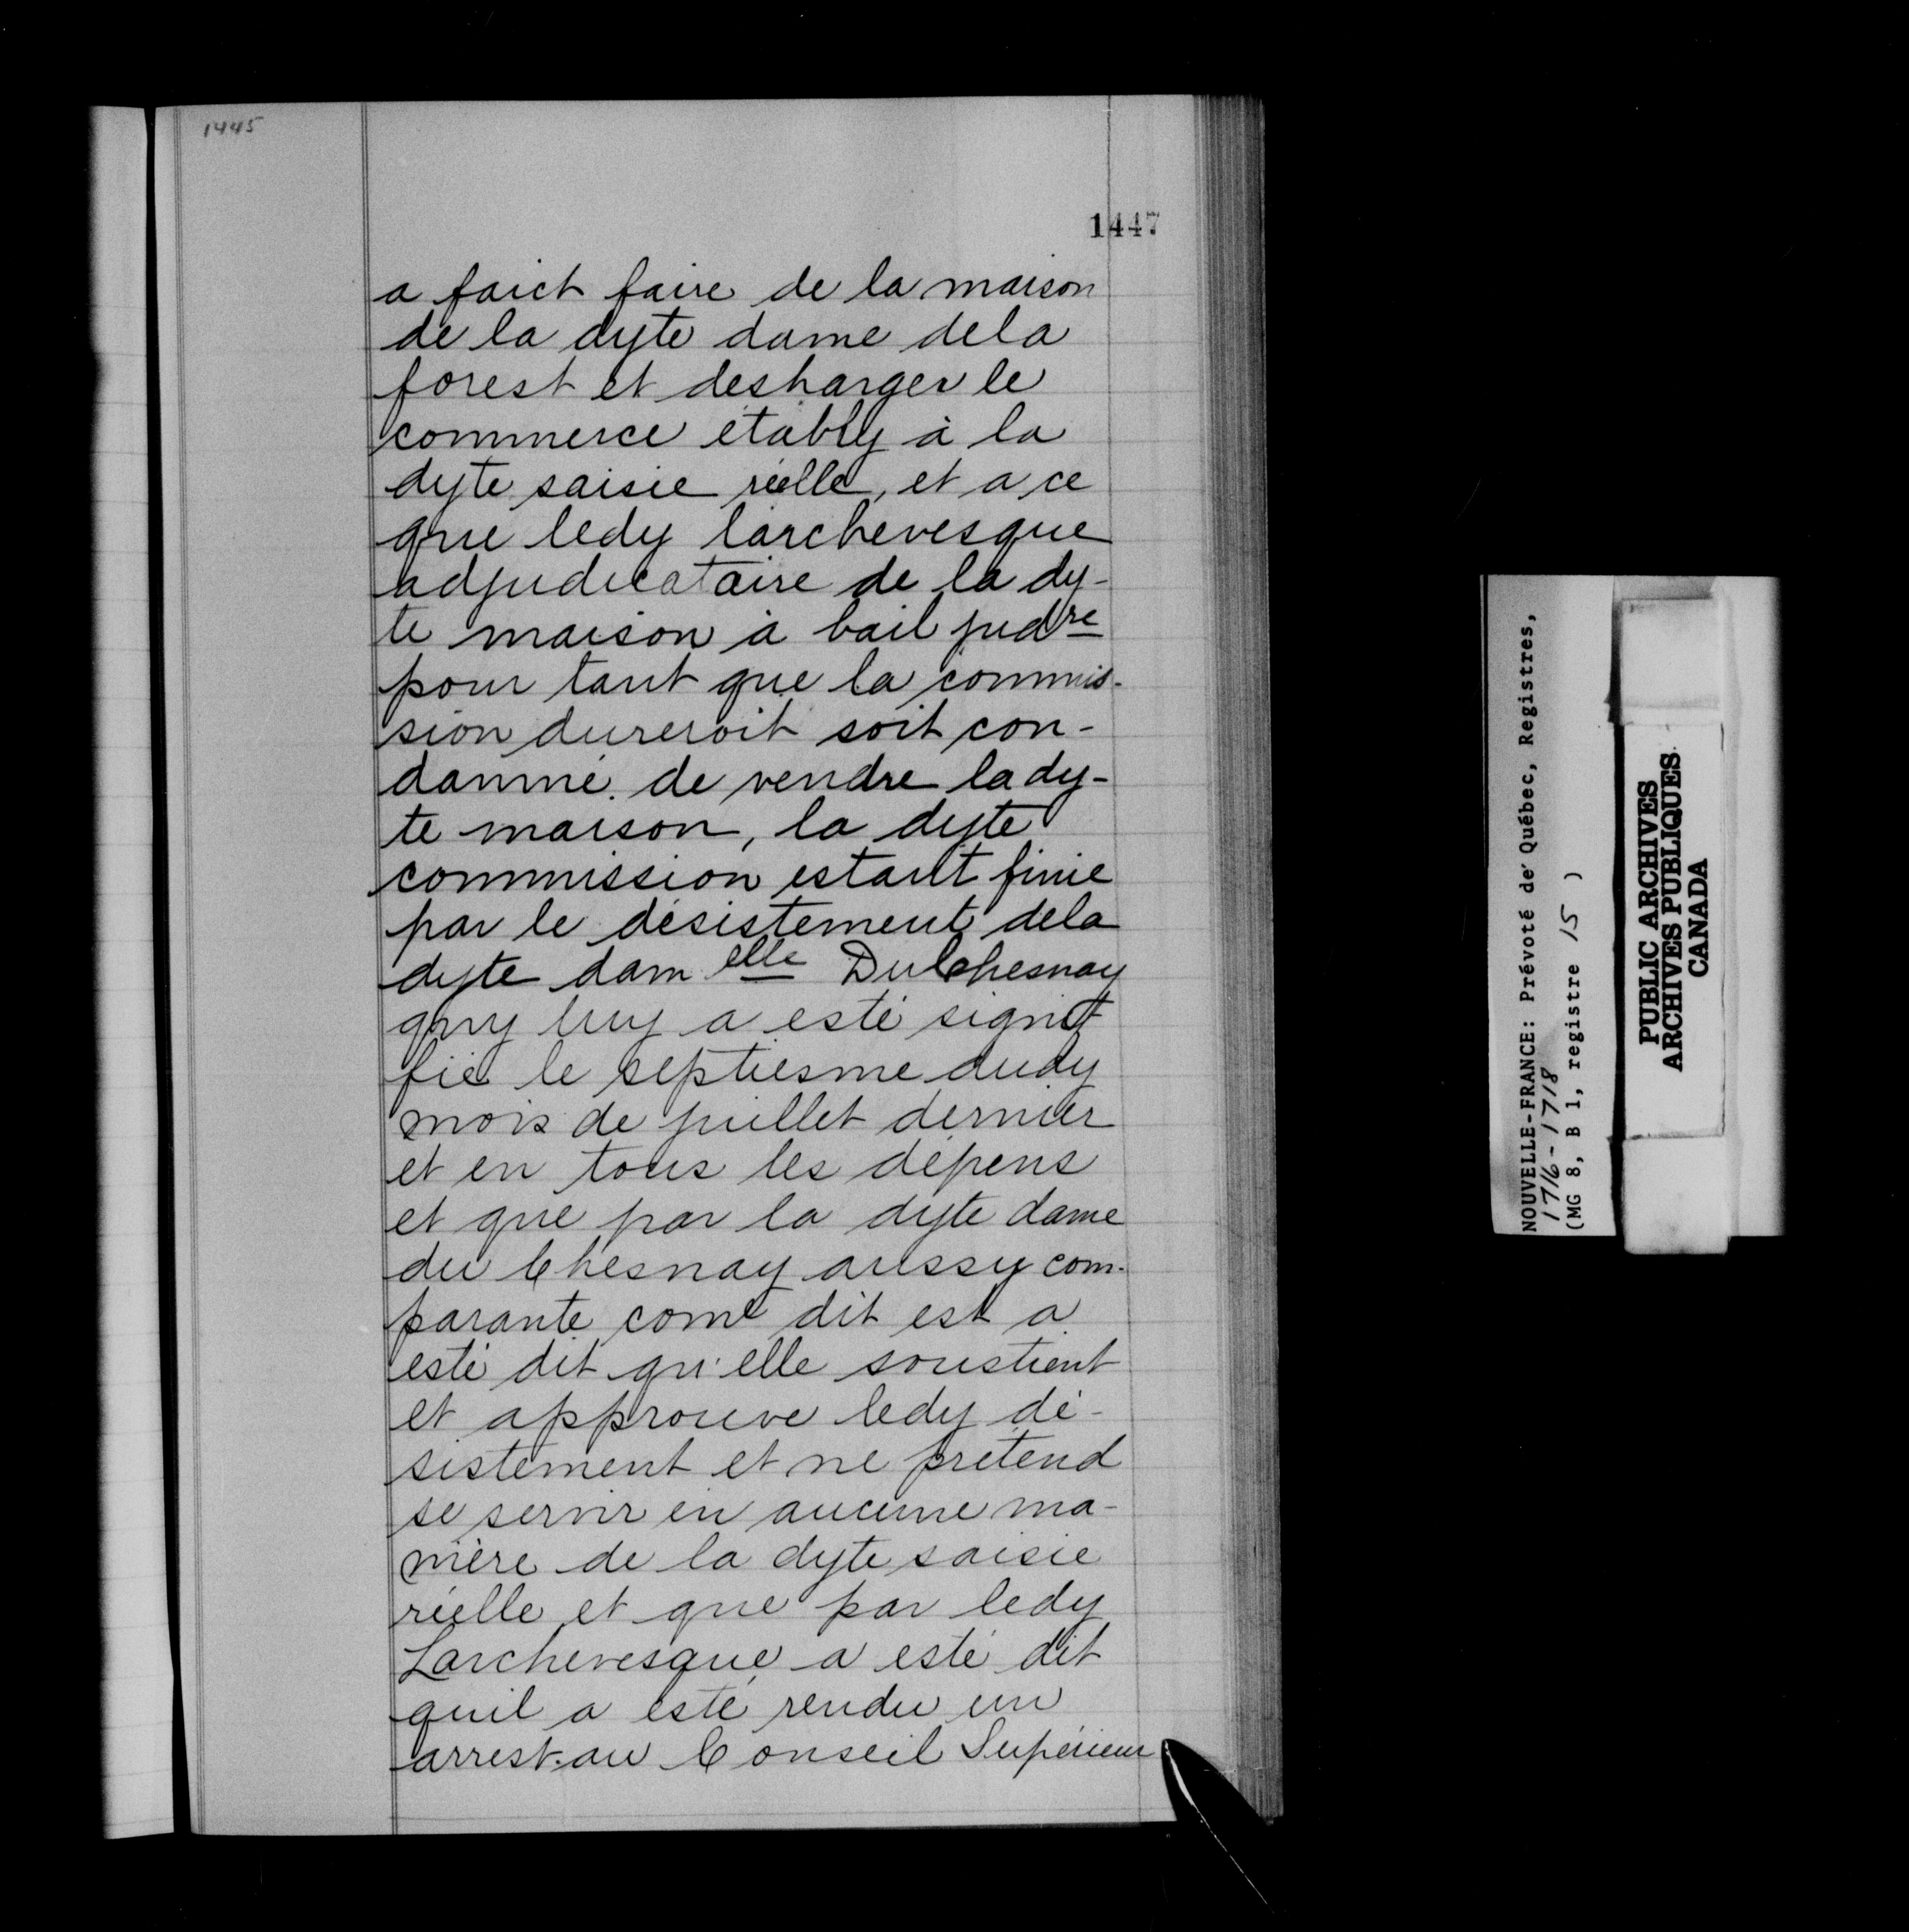 1445
1447
a faict faire de la maison
de la dyte dame dela
forest et desharger le
commerce étably à la
dyte saisie réelle, et a ce
que ledy larchevesque
adjudicataire de la dy-
te maison à bail judre
pour tant que la commis-
sion dureroit soit con-
damné de vendre la dy-
te maison, la dyte
commission estant finie
par le désistement dela
dyte damelle DuChesnay
quy luy a esté signi-
fié le septiesme dudy
mois de juillet dernier
et en tous les dépens
et que par la dyte dame
du Chesnay aussy com-
parante come dit est a
esté dit qu'elle soustient
et approuve ledy dé-
sistement et ne prétend
se servir en aucune ma-
nière de la dyte saisie
réelle et que par ledy
Larchevesque a esté dit
quil a esté rendu un
arrest au Conseil Supérieur
NOUVELLE-FRANCE: Prévoté de Québec, Registres,
1716-1718
(MG 8, B 1, registre 15 )
PUBLIC ARCHIVES
ARCHIVES PUBLIQUES
CANADA